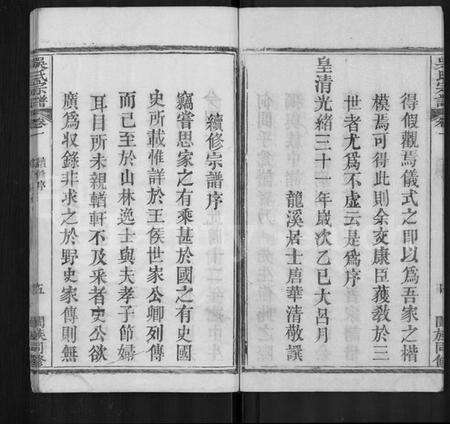 得假觀焉儀式之即以爲吾家之楷
模焉可得此則余交康臣莪敎於三
世者尤爲不虛云是爲序
皇清光緒三十一年歲次乙巳大呂月
龍溪居士唐華清敬譔
吳氏宗譜
卷一
續修序
五
闔族同修
續修宗譜序
竊嘗思家之有乘甚於國之有史國
史所載惟詳於王侯世家公卿列傳
而已至於山林逸士與夫孝子節婦
耳目所未親輶軒不及釆者史公欲
廣爲收錄非求之於野史家傳則無